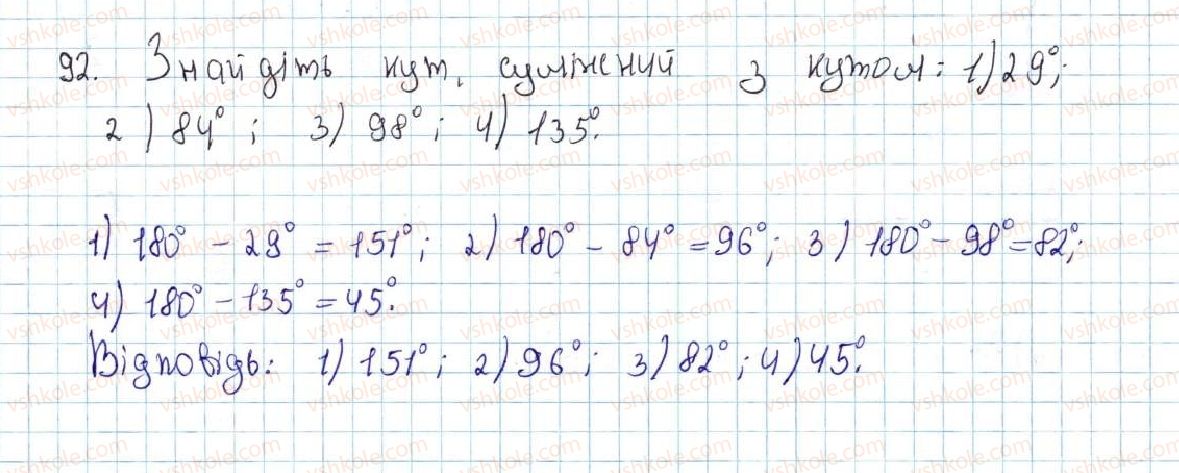 92. Знайдіть кут, суміжний з кутом: 1) 29°;
2) 84°; 3) 98°; 4) 135°.
1) 180° - 29° = 151°; 2) 180° - 84° = 96°; 3) 180° - 98° = 82°;
4) 180° - 135° = 45°.
Відповідь: 1) 151°; 2) 96°; 3) 82°; 4) 45°.